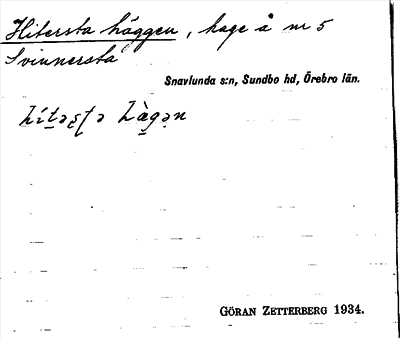 Hitersta häggen, hage å nr 5
Svinnersta
Snavlunda s:n, Sundbo hd, Örebro län.
GÖRAN ZETTERBERG 1934.